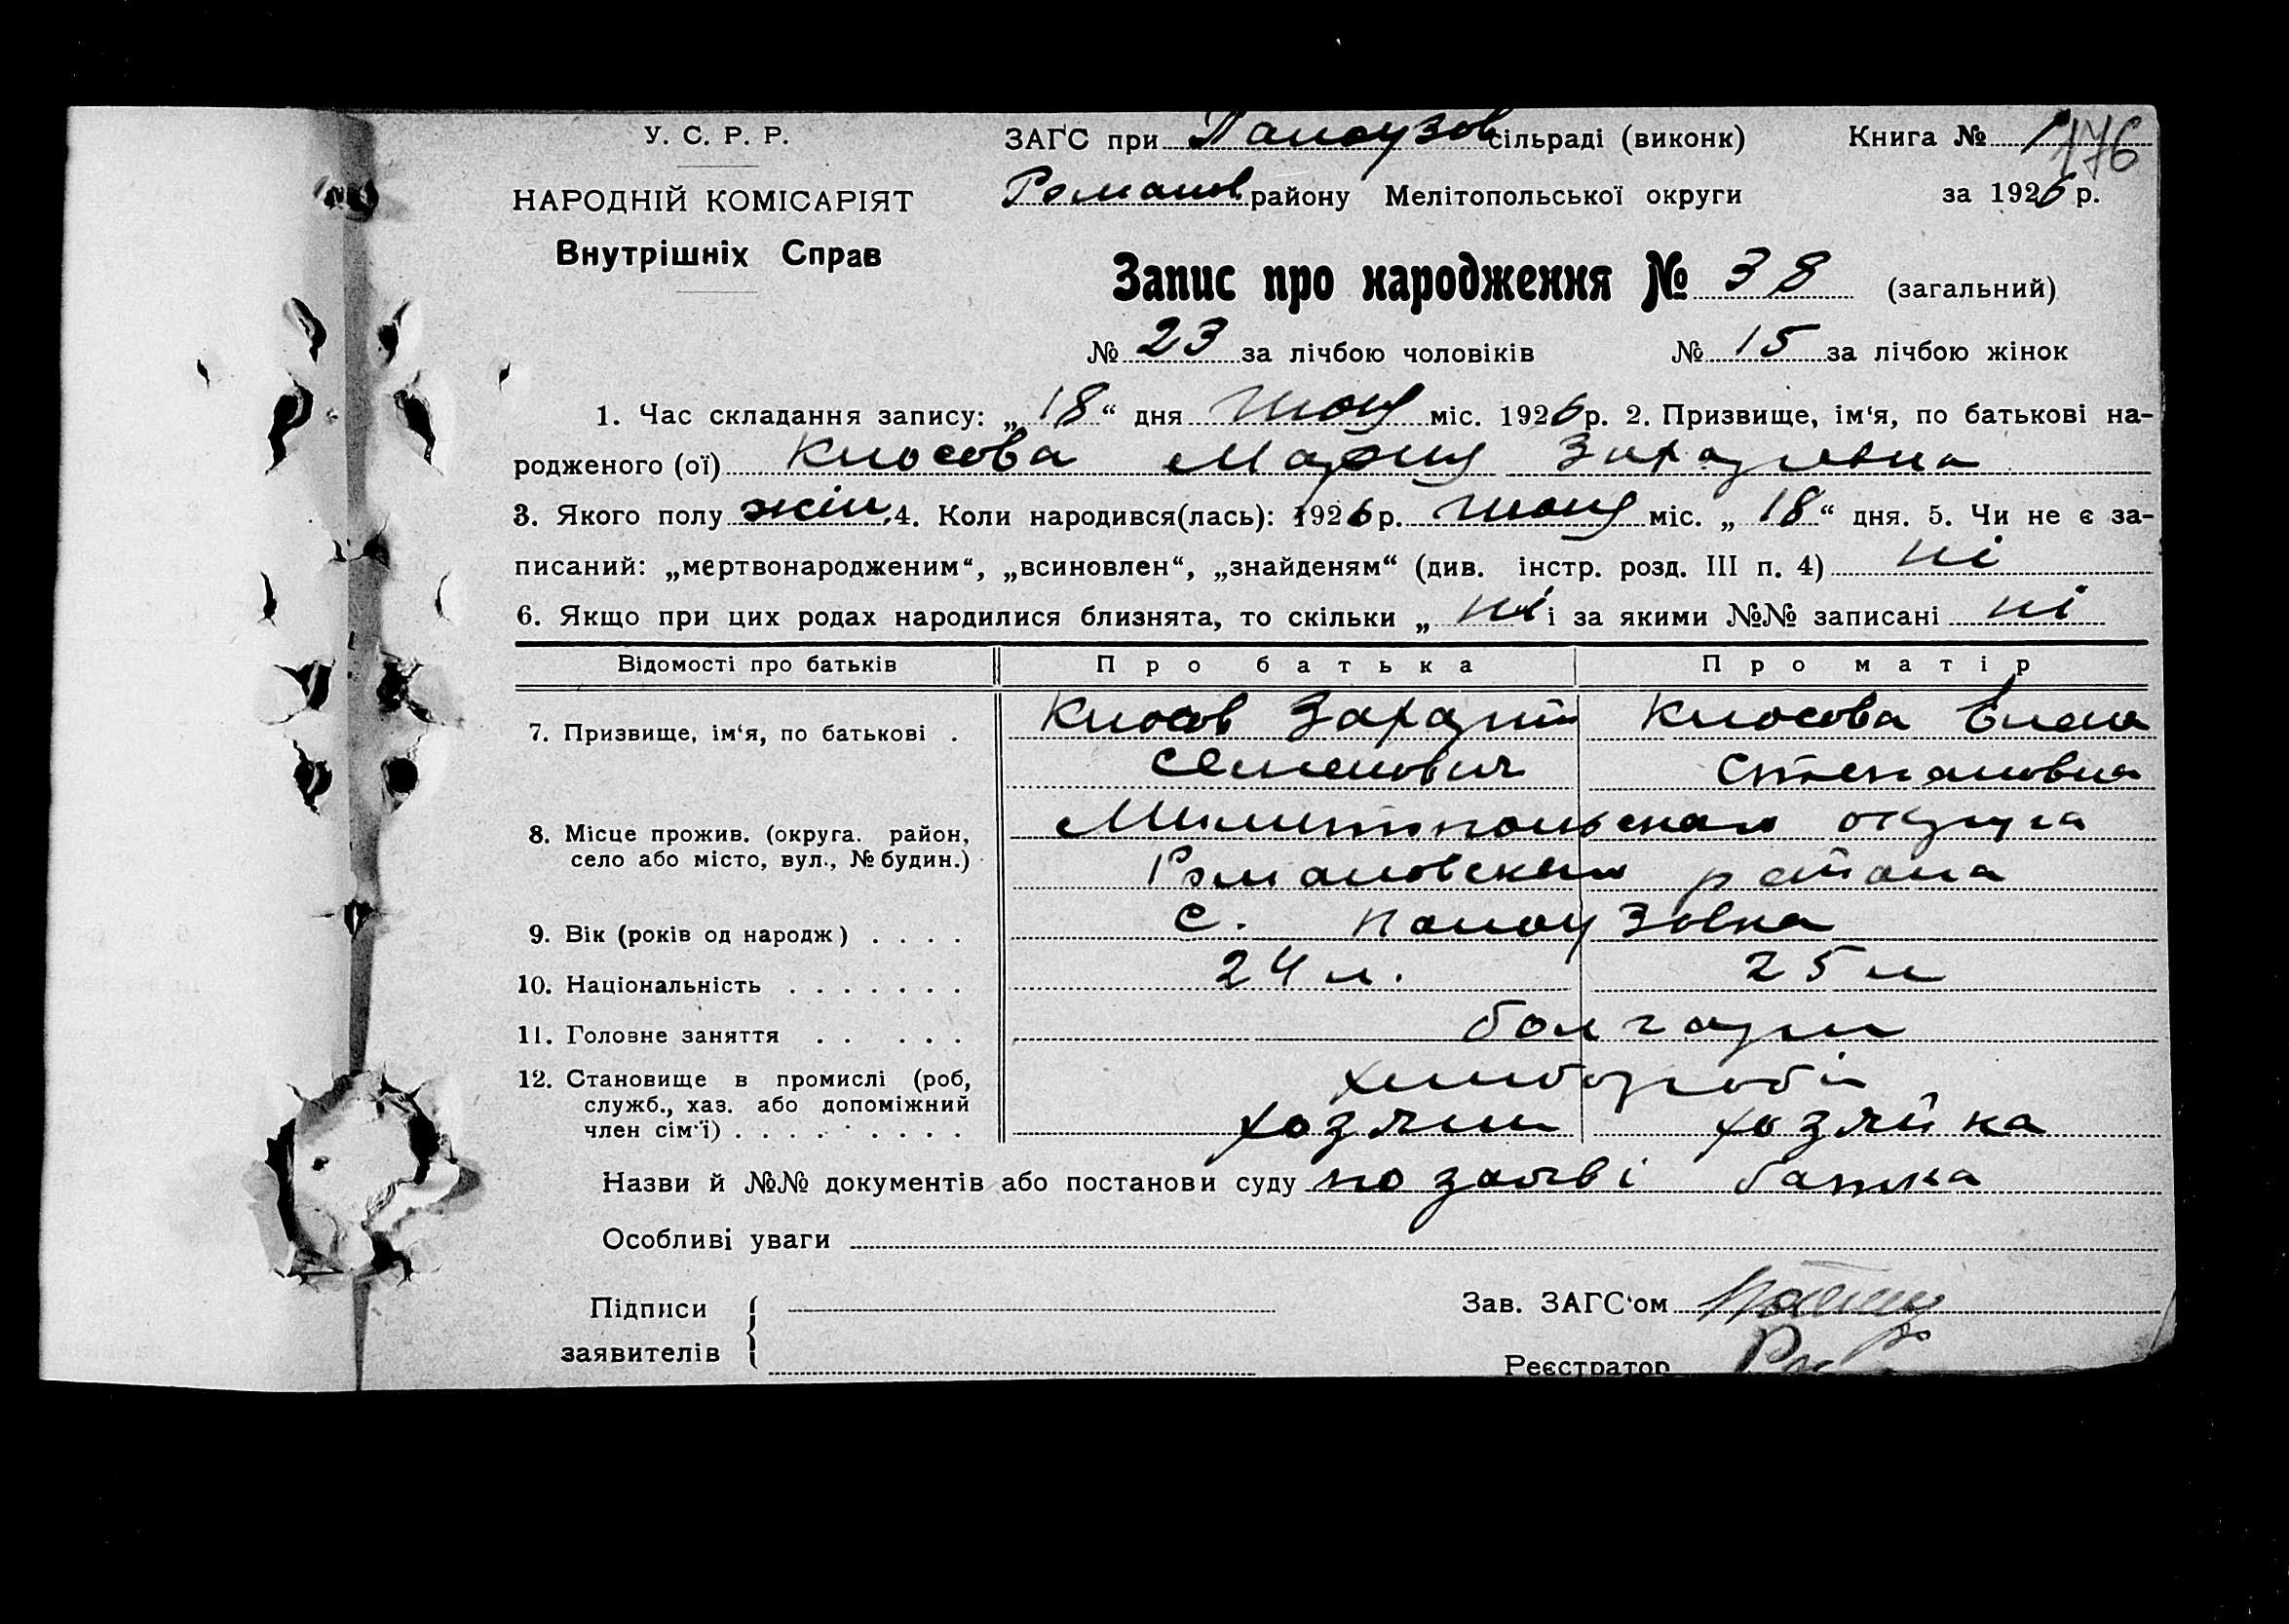 У. С. Р. Р.
НАРОДНІЙ КОМІСАРІЯТ
Внутрішніх Справ
ЗАГС при Палаузов сільраді (виконк) Книга № 1 176
Романов району Мелітопольської округи за 1926 р.
Запис про народження № 38 (загальний)
№ 23 за лічбою чоловіків № 15 за лічбою жінок
1. Час складання запису: „18“ дня міс. 1926 р. 2. Призвище, ім‘я, по батькові на-
родженого (ої) Клосова Мария Захаріевна
3. Якого полу жін. 4. Коли народився(лась): 1926 р. міс. „18“ дня. 5. Чи не є за-
писаний: „мертвонародженим“, „всиновлен“, „знайденям“ (див. інстр. розд. III п. 4) ні
6. Якщо при цих родах народилися близнята, то скільки „ ні і за якими №№ записані ні
Відомості про батьків Про батька Про матір
7. Призвище, ім‘я, по батькові . Клосов Захарий Клосова Елена
Семенович Степановна
8. Місце прожив. (округа. район, село або місто, вул., № будин.) Мелитопольская округа
Романовского района
9. Вік (років од народж) . . . . с. Палаузовка
10. Національність . . . . . . . 24 л. 25 л
11. Головне заняття . . . . . болгари
12. Становище в промислі (роб, хлибороби
служб., хаз. або допоміжний
член сім‘ї) . . . . . . . . . хозяин хозяйка
Назви й №№ документів або постанови суду по заяві батька
Особливі уваги
Підписи
заявителів
Зав. ЗАГС‘ом
Реєстратор